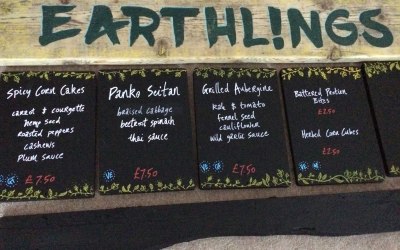 EARTHL!NGS
Spicy Corn Cakes
carrot & courgette
hemp seed
roasted peppers
cashews
Plum sauce
£7.50
Panko Seitan
braised cabbage
beetroot spinach
thai sauce
£7.50
Grilled Aubergine
kale & tomato
fennel seed
cauliflower
wild garlic sauce
£7.50
Battered Protein
Bites
£2.50
Herbed Corn Cakes
£2.50